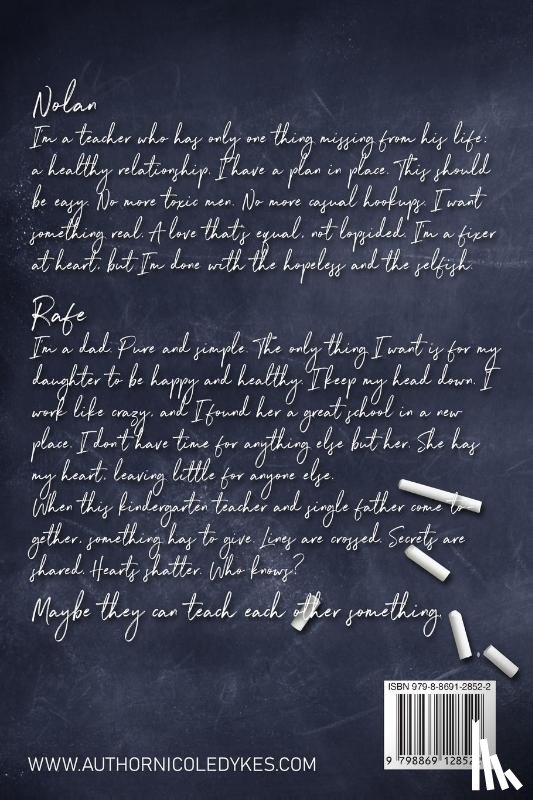 Nolan
I'm a teacher who has only one thing missing from his life:
a healthy relationship. I have a plan in place. This should
be easy. No more toxic men. No more casual hookups. I want
something real. A love that's equal, not lopsided. I'm a fixer
at heart, but I'm done with the hopeless and the selfish.
Rafe
I'm a dad. Pure and simple. The only thing I want is for my
daughter to be happy and healthy. I keep my head down. I
work like crazy, and I found her a great school in a new
place. I don't have time for anything else but her. She has
my heart, leaving little for anyone else.
When this kindergarten teacher and single father come to-
gether, something has to give. Lines are crossed. Secrets are
shared. Hearts shatter. Who knows?
Maybe they can teach each other something.
ISBN 979-8-8691-2852-2
9 798869 1285
WWW.AUTHORNICOLEDYKES.COM